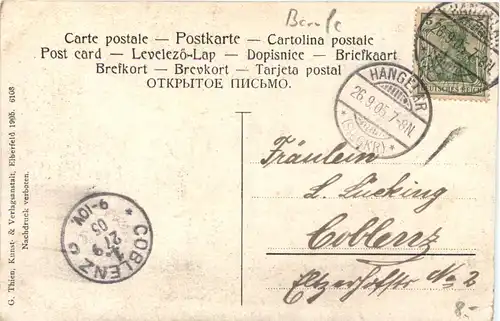 Carte postale — Postkarte — Cartolina postale
Post card — Levelező-Lap — Dopisnice — Briefkaart
Brefkort — Brevkort — Tarjeta postal
ОТКРЫТОЕ ПИСЬМО.
HANGELAR
26.9.05.7-8N.
* (SIEGKR) *
Fräulein
L. Lücking
Coblenz
Eltzerhofstr No 2
8.-
* COBLENZ *
27 9
05
9-10V.
G. Thien, Kunst- & Verlagsanstalt, Elberfeld 1905. 6103
Nachdruck verboten.